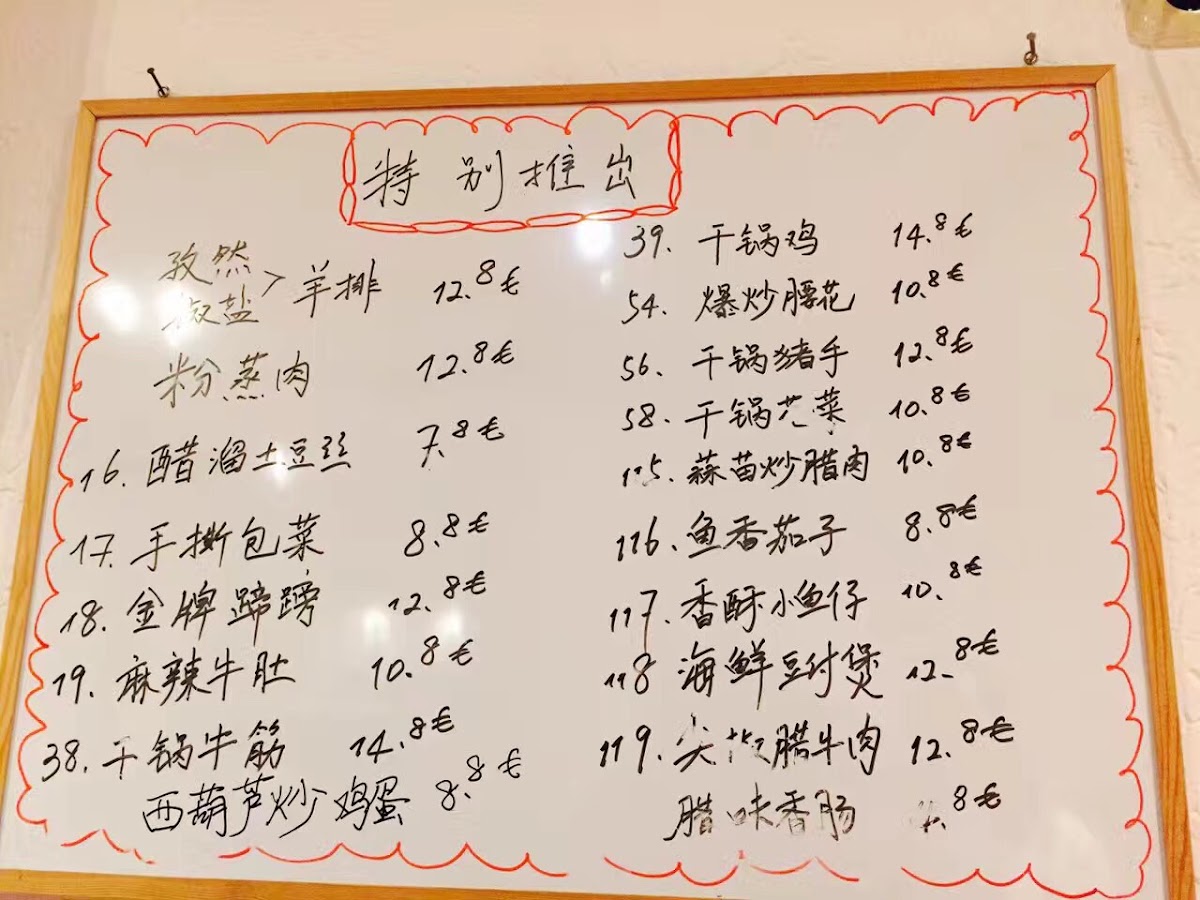 特别推出
孜然
椒盐 > 羊排 12.8€
粉蒸肉 12.8€
16. 醋溜土豆丝 7.8€
17. 手撕包菜 8.8€
18. 金牌蹄膀 12.8€
19. 麻辣牛肚 10.8€
38. 干锅牛筋 14.8€
西葫芦炒鸡蛋 8.8€
39. 干锅鸡 14.8€
54. 爆炒腰花 10.8€
56. 干锅猪手 12.8€
58. 干锅菜 10.8€
115. 蒜苗炒腊肉 10.8€
116. 鱼香茄子 8.8€
117. 香酥小鱼仔 10.8€
118 海鲜豆付煲 12.8€
119. 尖椒腊牛肉 12.8€
腊味香肠 .8€